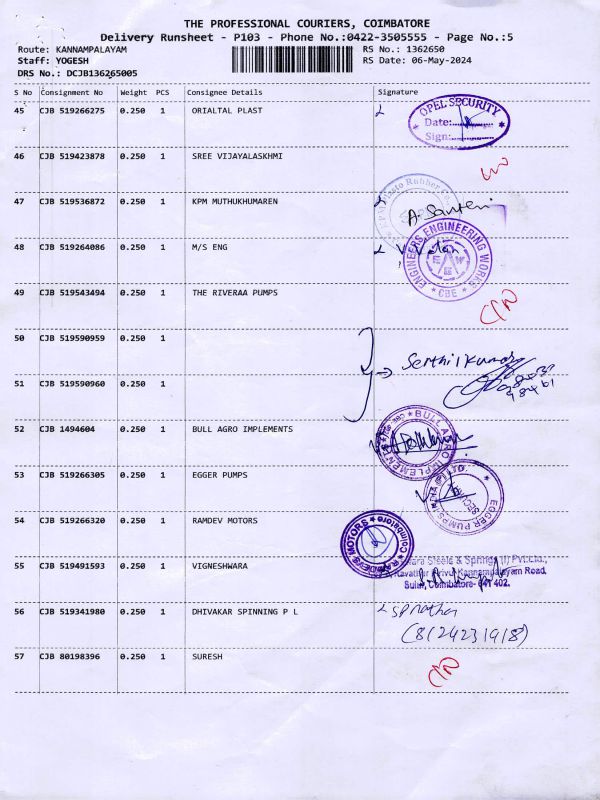 THE PROFESSIONAL COURIERS, COIMBATORE
Delivery Runsheet - P103 - Phone No.:0422-3505555 - Page No.:5
Route: KANNAMPALAYAM RS No.: 1362650
Staff: YOGESH RS Date: 06-May-2024
DRS No.: DCJB136265005
S No Consignment No Weight PCS Consignee Details Signature
45 CJB 519266275 0.250 1 ORIALTAL PLAST
OPEL SECURITY
Date:
Sign:
46 CJB 519423878 0.250 1 SREE VIJAYALASKHMI
47 CJB 519536872 0.250 1 KPM MUTHUKHUMAREN
Rubber
A. Santeri
48 CJB 519264086 0.250 1 M/S ENG
ENGINEERS ENGINEERING WORKS
* CBE *
49 CJB 519543494 0.250 1 THE RIVERAA PUMPS
50 CJB 519590959 0.250 1
Senthil Kumar
51 CJB 519590960 0.250 1
52 CJB 1494604 0.250 1 BULL AGRO IMPLEMENTS
BULL AGRO IMPLEMENTS
53 CJB 519266305 0.250 1 EGGER PUMPS
EGGER PUMPS LTD.
54 CJB 519266320 0.250 1 RAMDEV MOTORS
RAMDEV MOTORS
Coimbatore
55 CJB 519491593 0.250 1 VIGNESHWARA
Steels & Springs (I) Pvt.Ltd.,
Kannampalayam Road,
Sulur, Coimbatore- 641 402.
56 CJB 519341980 0.250 1 DHIVAKAR SPINNING P L
(8124231918)
57 CJB 80198396 0.250 1 SURESH